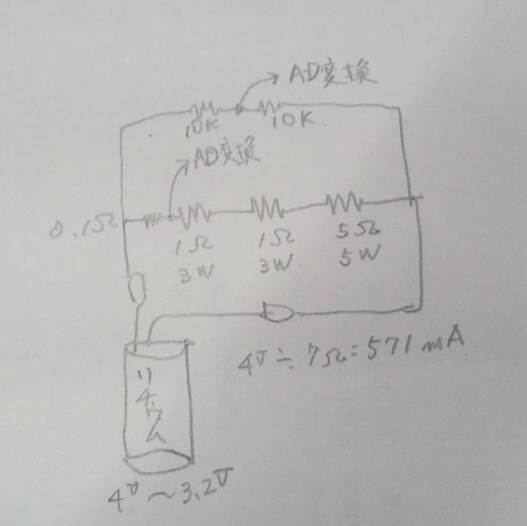 AD変換
10K
10K
AD変換
0.1Ω
1Ω
3W
1Ω
3W
5Ω
5W
4V÷7Ω=571mA
リチウム
4V～3.2V